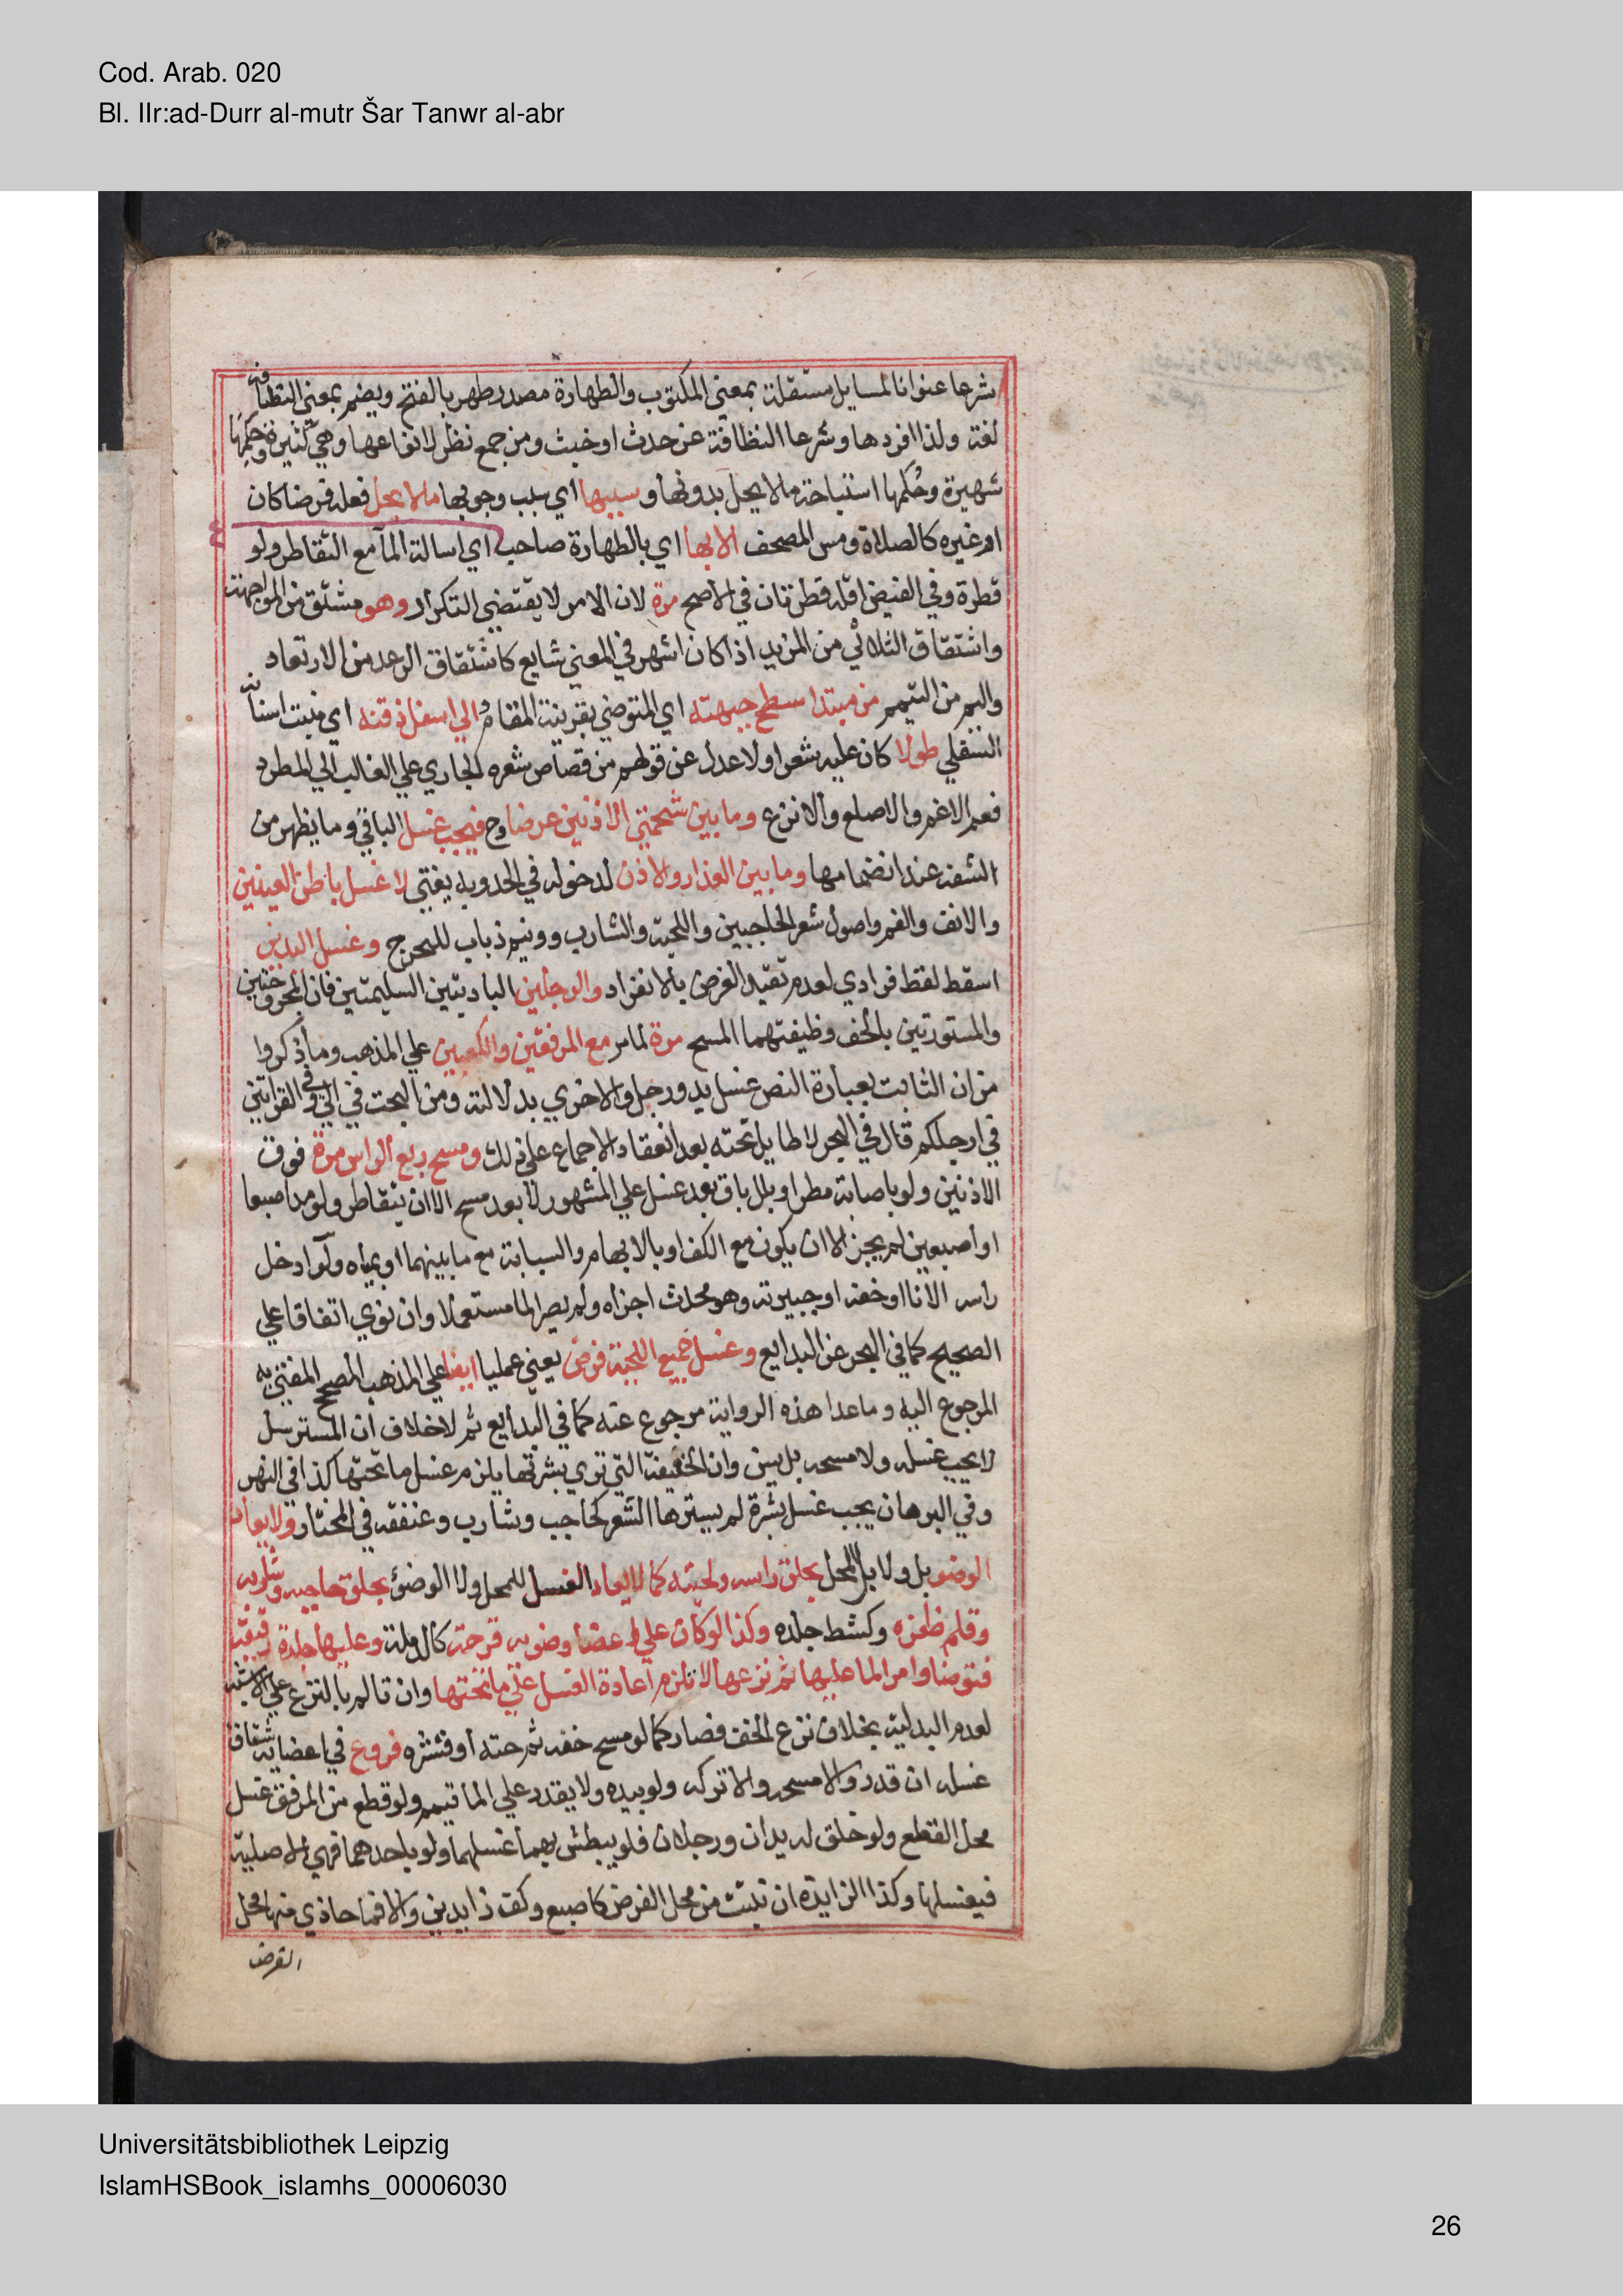 Cod. Arab. 020
Bl. IIr:ad-Durr al-mutr Šar Tanwr al-abr
شرعا عنوانا لمسايل مستقلة بمعني المكتوب والطهارة مصدر طهر بالفتح ويضم بمعني النظافة
لغة ولذا افردها وشرعا النظافة عن حدث او خبث ومن جمع نظر لانواعها وهي كثيرة وحكمها
شهيرة وحكمها استباحة مالا يحل بدونها وسببها اي سبب وجوبها مالا يحل فعله فرضا كان
او غيره كالصلاة ومس المصحف الا بها اي بالطهارة صاحب اي اسالة المآ مع التقاطر ولو
قطرة وفي الفيض اقله قطرتان في الاصح مرة لان الامر لا يقتضي التكرار وهو مشتق من المواجهة
واشتقاق الثلاثي من المزيد اذا كان اشهر في المعني شايع كاشتقاق الرعد من الارتعاد
واليم من التيمم من مبتدا سطح جبهته اي المتوضي بقرينة المقام الي اسفل ذقنه اي منبت اسنانه
السفلي طولا كان عليه شعر اولا عدل عن قولهم من قصاص شعره الجاري علي الغالب الي المطرد
فعم الاغم والاصلع والانزع وما بين شحمتي الاذنين عرضا وح فيجب غسل الباقي وما يظهر من
الشفة عند انضمامها وما بين العذار والاذن لدخوله في الحد وبه يفتي لا غسل باطن العينين
والانف والفم واصول شعر الحاجبين واللحية والشارب وونيم ذباب للحرج وغسل اليدين
اسقط لفظ فرادي لعدم تقيد الفرض بالانفراد والرجلين الباديتين السليمتين فان المجروحتين
والمستورتين بالخف وظيفتهما المسح مرة لما مر مع المرفقين والكعبين علي المذهب وما ذكروا
من ان الثابت بعبارة النص غسل يد ورجل والاخري بدلالته ومن البحث في الي وفي القراتين
في ارجلكم قال في البحر لا طايل تحته بعد انعقاد الاجماع علي ذلك ومسح ربع الراس مرة فوق
الاذنين ولو باصابة مطر او بلل باق بعد غسل علي المشهور لا بعد مسح الا ان يتقاطر ولو مد اصبعا
او اصبعين لم يجز الا ان يكون مع الكف او بالابهام والسبابة مع ما بينهما او بمياه ولو ادخل
راسه الانا او خفه او جبيرته وهو محدث اجزاه ولم يصر الما مستعملا وان نوي اتفاقا علي
الصحيح كما في البحر عن البدايع وغسل جميع اللحية فرض يعني عمليا ايضا علي المذهب الصحيح المفتي به
المرجوع اليه وما عدا هذه الرواية مرجوع عنه كما في البدايع ثم لا خلاف ان المسترسل
لا يجب غسله ولا مسحه بل يسن وان الخفيفة التي تري بشرتها يلزم غسل ما تحتها كذا في النهر
وفي البرهان يجب غسل بشرة لم يسترها الشعر كحاجب وشارب وعنفقه في المختار ولا يعاد
الوضو بل ولا بل المحل بحلق راسه ولحيته كما لا يعاد الغسل للمحل ولا الوضوء بحلق حاجبه وشاربه
وقلم ظفره وكشط جلده وكذا لو كان علي اعضا وضوبه قرحة كالدملة وعليها جلدة رقيقة
فتوضا وامر الما عليها ثم نزعها لا تلزم اعادة الغسل علي ما تحتها وان تالم بالنزع علي الاشبه
لعدم البدلية بخلاف نزع الخف فصار كما لو مسح خفه ثم حته او قشره فروع في اعضايه شقاق
غسله ان قدر والا مسحه والا تركه ولو بيده ولا يقدر علي الما تيمم ولو قطع من المرفق غسل
محل القطع ولو خلق له يدان ورجلان فلو يبطش بهما غسلهما ولو باحدهما فهي الاصلية
فيغسلها وكذا الزايدة ان نبتت من محل الفرض كاصبع وكف زايدين والا فما حاذي منها محل
الفرض
Universitätsbibliothek Leipzig
IslamHSBook_islamhs_00006030
26